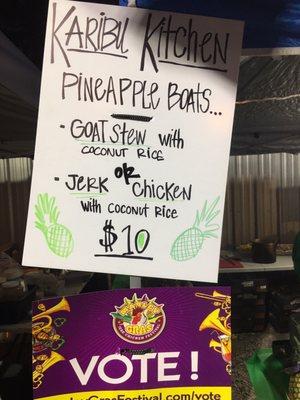 Karibu Kitchen
Pineapple Boats...
- Goat Stew with
coconut rice
or
- Jerk Chicken
with coconut rice
$10
GRAS
VOTE!
GrasFestival.com/vote